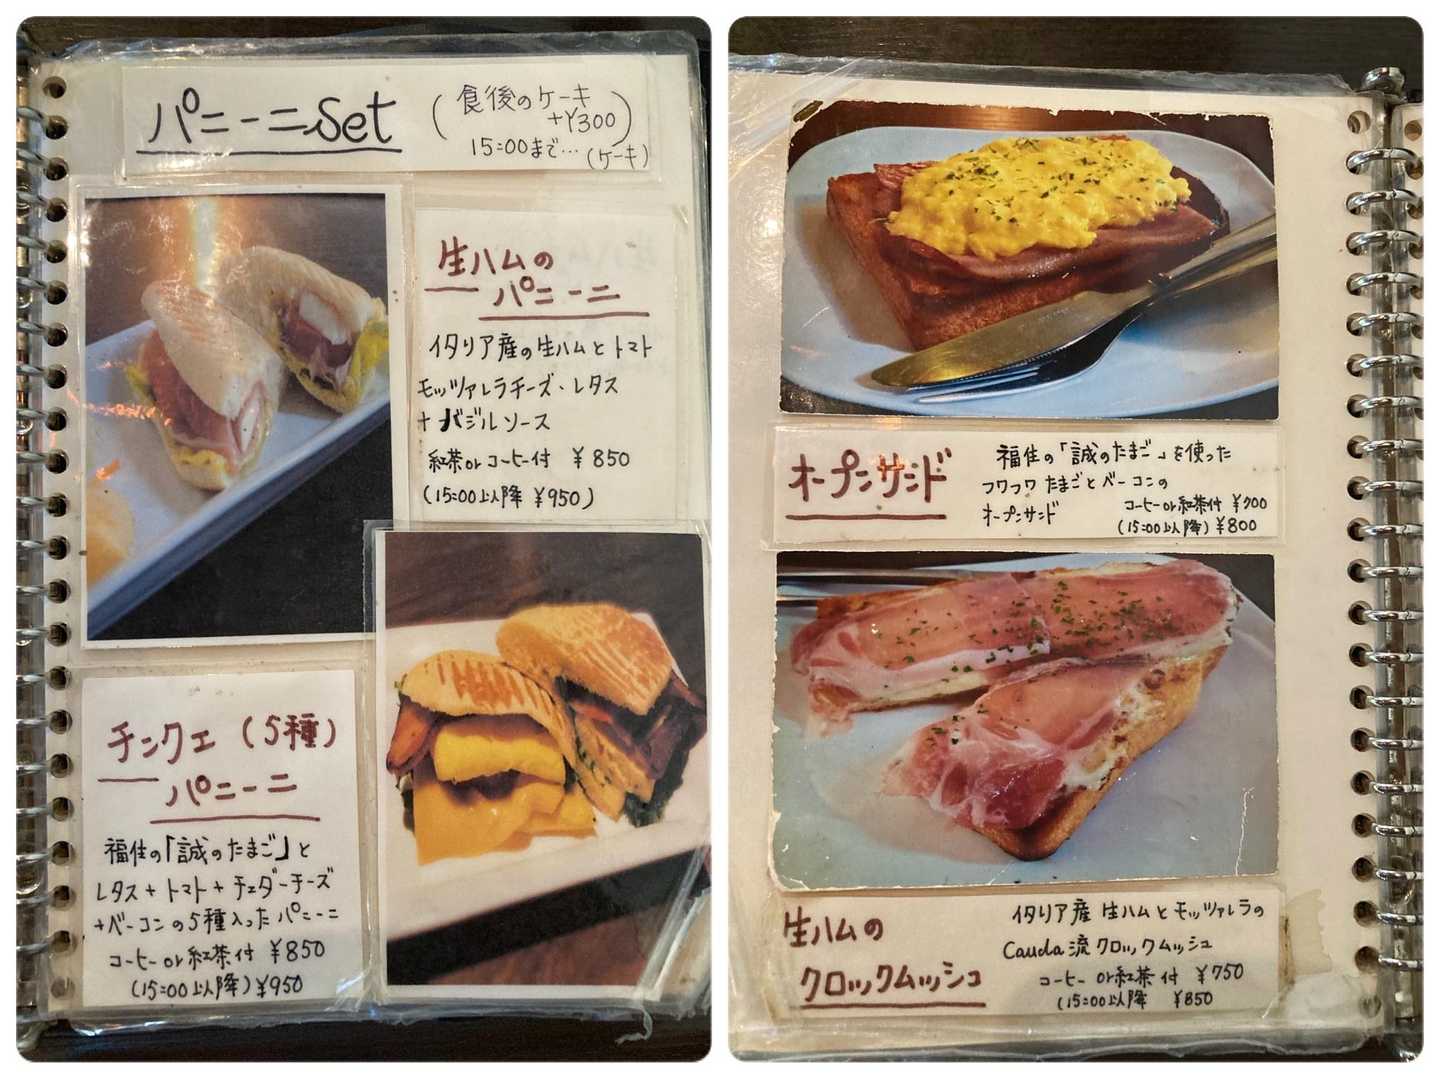 パニーニSet
(食後のケーキ
+¥300)
15:00まで…(ケーキ)
生ハムの
パニーニ
イタリア産の生ハムとトマト
モッツァレラチーズ・レタス
+バジルソース
紅茶orコーヒー付 ¥850
(15:00以降 ¥950)
チンクエ(5種)
パニーニ
福住の「誠のたまご」と
レタス+トマト+チェダーチーズ
+ベーコンの5種入ったパニーニ
コーヒーor紅茶付 ¥850
(15:00以降)¥950
オープンサンド
福住の「誠のたまご」を使った
フワフワたまごとベーコンの
オープンサンド
コーヒーor紅茶付 ¥700
(15:00以降)¥800
生ハムの
クロックムッシュ
イタリア産 生ハムとモッツァレラの
Cauda流クロックムッシュ
コーヒーor紅茶付 ¥750
(15:00以降 ¥850